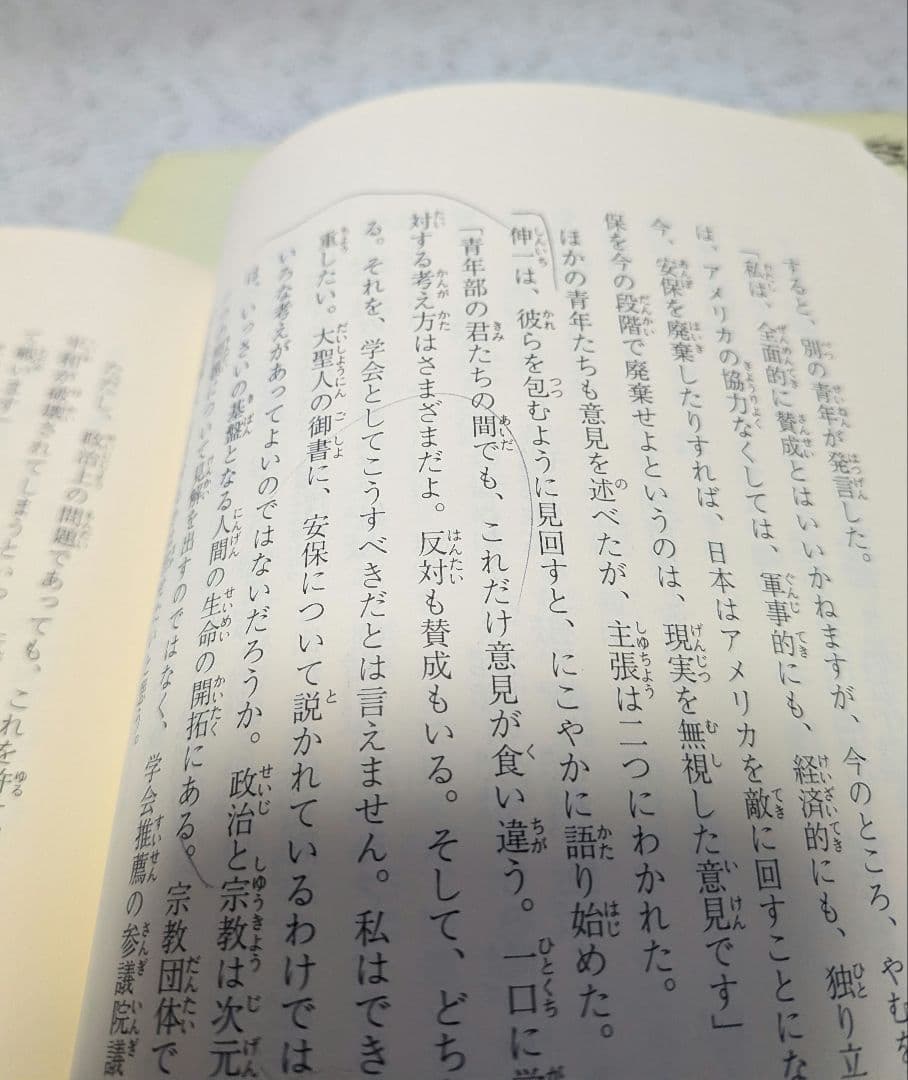 すると、別の青年が発言した。
「私は、全面的に賛成とはいいかねますが、今のところ、やむを
は、アメリカの協力なくしては、軍事的にも、経済的にも、独り立
今、安保を廃棄したりすれば、日本はアメリカを敵に回すことにな
保を今の段階で廃棄せよというのは、現実を無視した意見です」
ほかの青年たちも意見を述べたが、主張は二つにわかれた。
伸一は、彼らを包むように見回すと、にこやかに語り始めた。
「青年部の君たちの間でも、これだけ意見が食い違う。一口に学
対する考え方はさまざまだよ。反対も賛成もいる。そして、どち
る。それを、学会としてこうすべきだとは言えません。私はでき
重したい。大聖人の御書に、安保について説かれているわけでは
いろな考えがあってよいのではないだろうか。政治と宗教は次元
は、いっさいの基盤となる人間の生命の開拓にある。宗教団体で
について見解を出すのではなく、学会推薦の参議院議
ただし、政治上の問題であっても、これを許
利が破壊されてしまうといっ
て戦います」